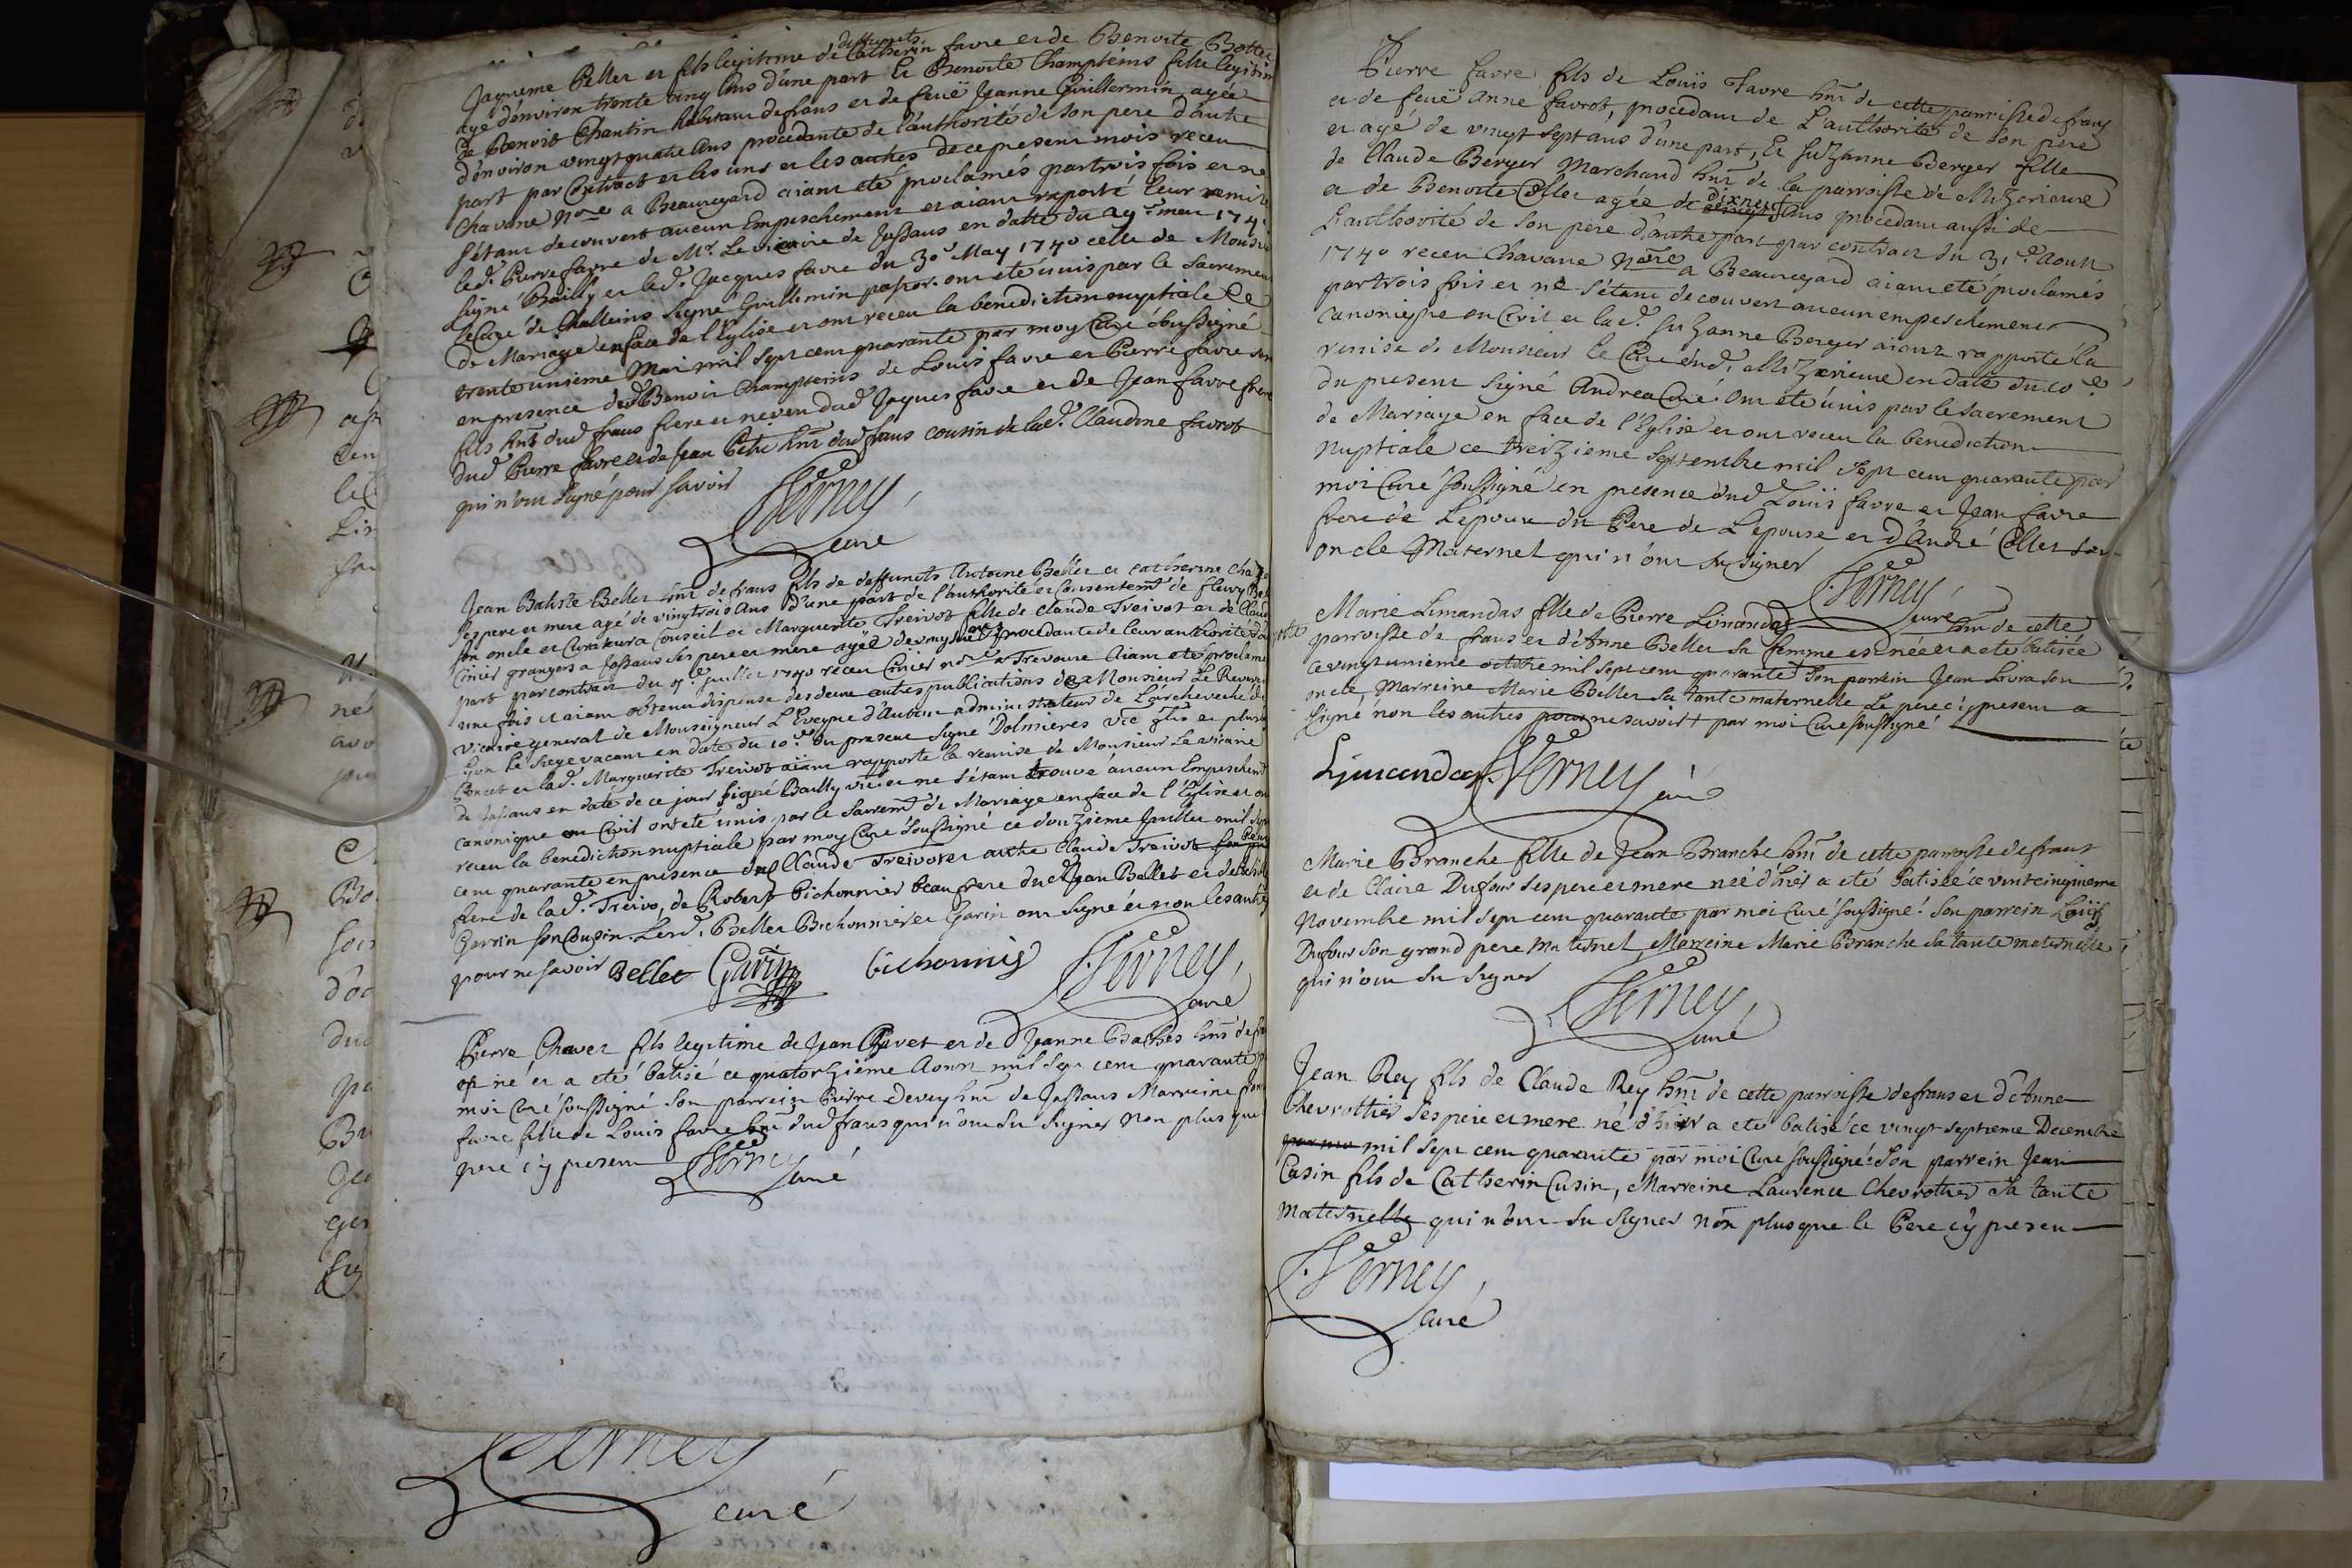 deffunts
Jaqueme Pellet et fils legitime de Catherin favre et de Benoite Bottet
agé d'environ trente cinq ans d'une part Et Benoite Champteins fille legitim
de Benoit Chantin habitant de frans et de feuë Jeanne Guillermin, agée
d'environ vingt quatre ans procedante de l'authorité de son pere d'autre
part par Contract et les uns et les autres de ce present mois receu
Chavane Nore a Beauregard aiant eté proclamés par trois fois et ne
s'étant decouvert aucun Empeschement et aiant raporté leur remise
led. Pierre favre de Mr. Le vicaire de Jassans en datte du 29e. may 174
signé Bailly et led. Jacques favre du 30e May 1740 celle de Monsie
le Curé de Challeins signé Guillermin pastor. ont eté unis par le Sacremen
de Mariage en face de l'Eglise et ont receu la benediction nuptiale le
trente unieme Mai mil sept cent quarante par moy Curé soussigné
en presence dud Benoit Champteins de Louis favre et Pierre favre son
fils hnt dud frans frere et neveu dud Jaques favre et de Jean favre frere
dud Pierre favre et de Jean Petit hnt dud frans cousin de lad. Claudine favrot
qui n'ont signé pour savoir
Verney
curé
Jean Batiste Bellet hnt de frans fils de deffuncts Antoine Bellet et catherine Cha
ses pere et mere agé de vingt trois ans d'une part de l'authorité et Consentemt de fleury Bel
son oncle et Curateur a Conseil et Marguerite Treivot fille de claude Treivot et de Claud
Cinier grangers a Jassans ses pere et mere agée de vingt ans procedante de leur authorité d'au
part par contract du 9e. Juillet 1740 receu Cinier nore a Trevoux Aiant eté proclamé
une fois et aiant obtenu dispense des deux autres publications de Monsieur Le Revere
vicaire general de Monseigneur L'Eveque d'Autun administrateur de L'archeveché de
Lyon le siege vacant en date du 10e du present signé Dolmieres vic gñl et plus
Poncet et lad. Marguerite Treivot aiant rapporté la remise de Monsieur Le vicaire
de Jassans en date de ce jour signé Bailly vic. et ne s'étant trouvé aucun Empeschemt
canonique ou Civil ont eté unis par le Sacremt de Mariage en face de l'Eglise et on
receu la benediction nuptiale par moy Curé soussigné ce douzieme Juillet mil sept
cent quarante en presence dud Claude Treivot et autre Claude Treivot
frere de lad. Treivo, de Robert Bichonnier beaufrere dud Jean Bellet et de
Garrin son Cousin. Lesd. Bellet Bichonnier et Garin ont signé et non les autres
pour ne savoir Bellet Garin bichonnier Verney
curé
Pierre Chavet fils legitime de Jean Chavet et de Jeanne Baches hnt de fra
est né et a eté batisé ce quatorzieme Aoust mil sept cent quarante p
moi Curé soussigné son parrein Pierre Devey hnt de Jassans Marreine
favre fille de Louis favre hnt dud frans qui n'ont su signer non plus que
pere cy present Verney
curé
Verney
curé
Pierre favre fils de Louïs Favre hnt de cette parroisse de frans
et de feuë Anne favrot, procedant de L'authorité de son pere
et agé de vingt sept ans d'une part, Et Suzanne Berger fille
de Claude Berger Marchand hnt de la parroisse de Mizerieux
et de Benoite Collet agée de dixneuf ans procedant aussi de
L'authorité de son pere d'autre part par contract du 31e. Aoust
1740 receu Chavane Nore a Beauregard aiant eté proclamés
par trois fois et ne s'étant decouvert aucun empeschement
canonique ou Civil et lad. Suzanne Berger aiant rapporté la
remise de Monsieur le Curé dud. Mizerieux en date du 10e
du present signé Andrea Curé. Ont eté unis par le Sacrement
de Mariage en face de l'Eglise et ont receu la benediction
nuptiale ce treizieme septembre mil sept cent quarante par
moi Curé soussigné en presence dud Louïs favre et Jean favre
frere de L'epoux du Pere de L'epouse et d'André Collet son
oncle Maternel qui n'ont su signer
Verney
curé
Marie Limandas fille de Pierre Limandas hnt de cette
parroisse de frans et d'Anne Bellet sa femme est née et a eté batisée
ce vingt unieme octobre mil sept cent quarante son parrein Jean Livra son
oncle, Marreine Marie Bellet sa tante maternelle Le pere cy present a
signé non les autres pour ne savoir par moi Curé soussigné
Lymandas Verney
curé
Marie Branche fille de Jean Branche hnt de cette parroisse de frans
et de Claire Dufour ses pere et mere neé d'hier a eté batisée ce vint cinquieme
Novembre mil sept cent quarante par moi Curé soussigné. Son parrein Louïs
Dufour son grand pere maternel Marreine Marie Branche sa tante maternelle
qui n'ont su signer
Verney
curé
Jean Rey fils de Claude Rey hnt de cette parroisse de frans et d'Anne
Chevrottier ses pere et mere né d'hier a eté batisé ce vingt septieme Decembre
mil sept cent quarante par moi Curé soussigné. Son parrein Jean
Cusin fils de Catherin Cusin, Marreine Laurence Chevrotier sa tante
maternelle qui n'ont su signer non plus que le Pere cy present
Verney
curé